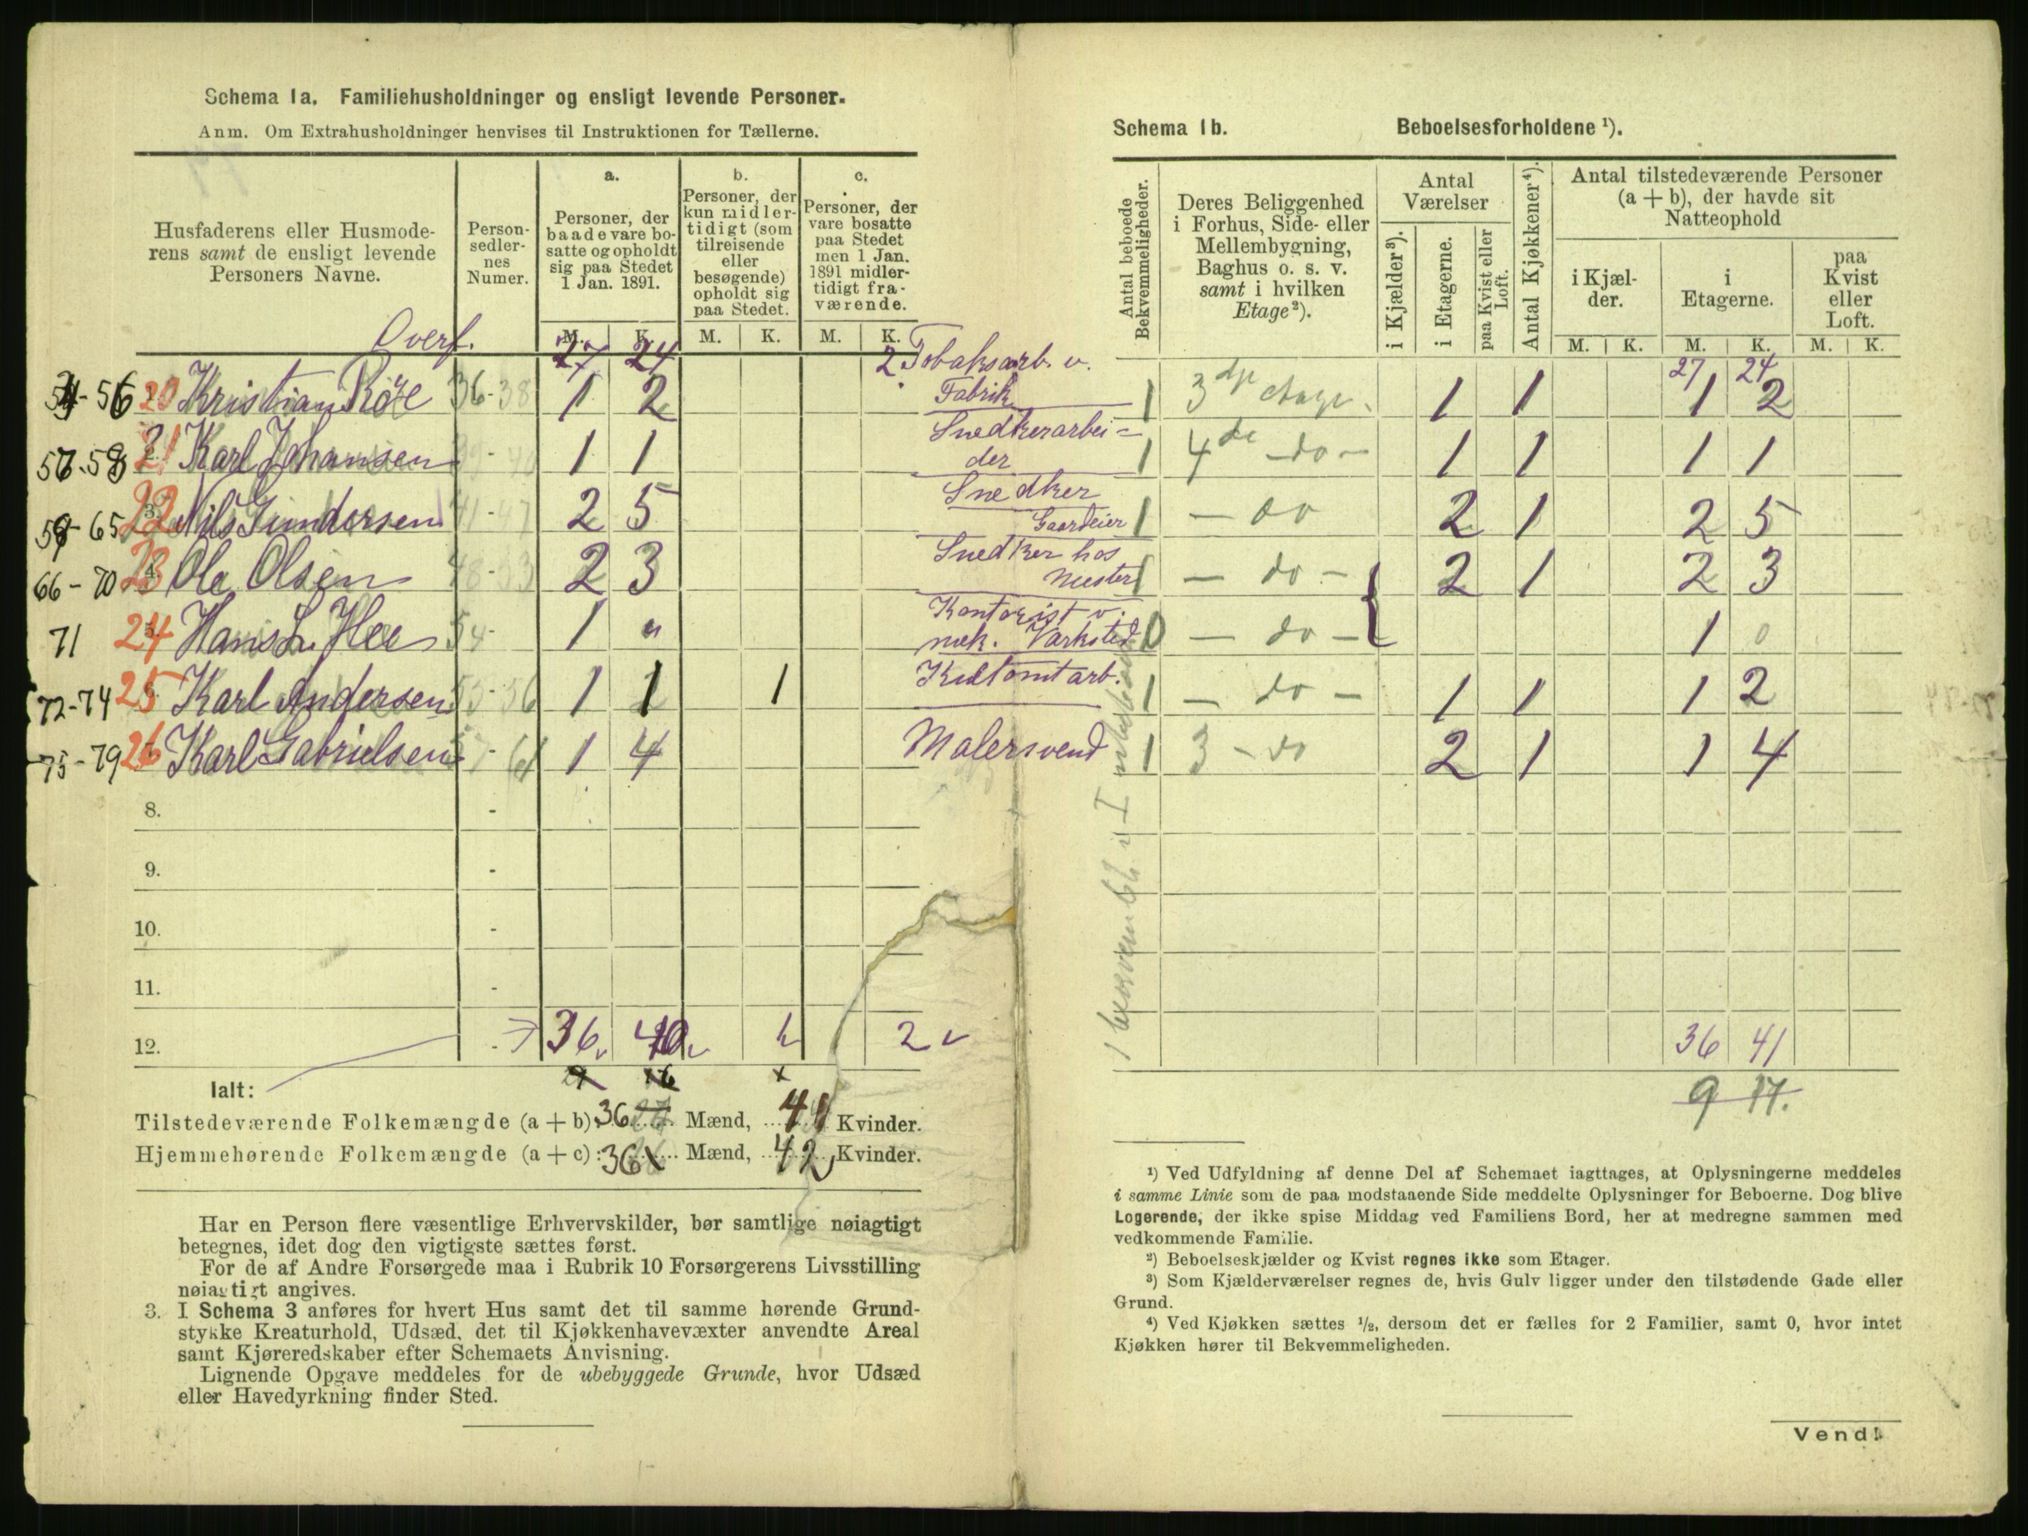 Schema 1a. Familiehusholdninger og ensligt levende Personer.
Anm. Om Extrahusholdninger henvises til Instruktionen for Tællerne.
Husfaderens eller Husmoderens samt de ensligt levende Personers Navne.
Personsedlernes Numer.
a. Personer, der baade vare bosatte og opholdt sig paa Stedet 1 Jan. 1891.
b. Personer, der kun midlertidigt (som tilreisende eller besøgende) opholdt sig paa Stedet.
c. Personer, der vare bosatte paa Stedet men 1 Jan. 1891 midlertidigt fraværende.
M. K. M. K. M. K.
Overf. 27 24 2
56 20 Kristian Roze 36-38 1 2 Tobaksarb. v. Fabrik
21 Karl Johansen 1 1 Snedkerarbeider
65 22 Nils Gundersen 41-47 2 5 Snedker Gaardeier
66-70 23 Ole Olsen 2 3 Snedker hos Mester
71 24 Hans L. Hee 54- 1 " Kontorist v. mek. Værksted
72-74 25 Karl Andersen 55-56 1 1 1
75-79 26 Karl Gabrielsen 61 1 4 Malersvend
8. -
9. -
10. -
11. -
12. - 36 40 2
Ialt:
Tilstedeværende Folkemængde (a + b): 36 Mænd, 41 Kvinder.
Hjemmehørende Folkemængde (a + c): 36 Mænd, 42 Kvinder.
Har en Person flere væsentlige Erhvervskilder, bør samtlige nøiagtigt
betegnes, idet dog den vigtigste sættes først.
For de af Andre Forsørgede maa i Rubrik 10 Forsørgerens Livsstilling
nøiagtigt angives.
3. I Schema 3 anføres for hvert Hus samt det til samme hørende Grund-
stykke Kreaturhold, Udsæd, det til Kjøkkenhavevæxter anvendte Areal
samt Kjøreredskaber efter Schemaets Anvisning.
Lignende Opgave meddeles for de ubebyggede Grunde, hvor Udsæd
eller Havedyrkning finder Sted.
Schema 1b. Beboelsesforholdene ¹).
Antal beboede Bekvemmeligheder.
Deres Beliggenhed i Forhus, Side- eller Mellembygning, Baghus o. s. v. samt i hvilken Etage²).
Antal Værelser
i Kjælder³).
i Etagerne.
paa Kvist eller Loft.
Antal Kjøkkener⁴).
Antal tilstedeværende Personer (a + b), der havde sit Natteophold
i Kjælder.
i Etagerne.
paa Kvist eller Loft.
M. K. M. K. M. K.
27 24
1 3 etage 1 1 1 2
1 4de - do - 1 1 1 1
1 - do 2 1 2 5
1 - do - 2 1 2 3
0 - do - 1 0
1 - do - 1 1 1 2
1 3 - do 2 1 1 4
36 41
9 17.
¹) Ved Udfyldning af denne Del af Schemaet iagttages, at Oplysningerne meddeles
i samme Linie som de paa modstaaende Side meddelte Oplysninger for Beboerne. Dog blive
Logerende, der ikke spise Middag ved Familiens Bord, her at medregne sammen med
vedkommende Familie.
²) Beboelseskjælder og Kvist regnes ikke som Etager.
³) Som Kjælderværelser regnes de, hvis Gulv ligger under den tilstødende Gade eller
Grund.
⁴) Ved Kjøkken sættes ½, dersom det er fælles for 2 Familier, samt 0, hvor intet
Kjøkken hører til Bekvemmeligheden.
Vend!